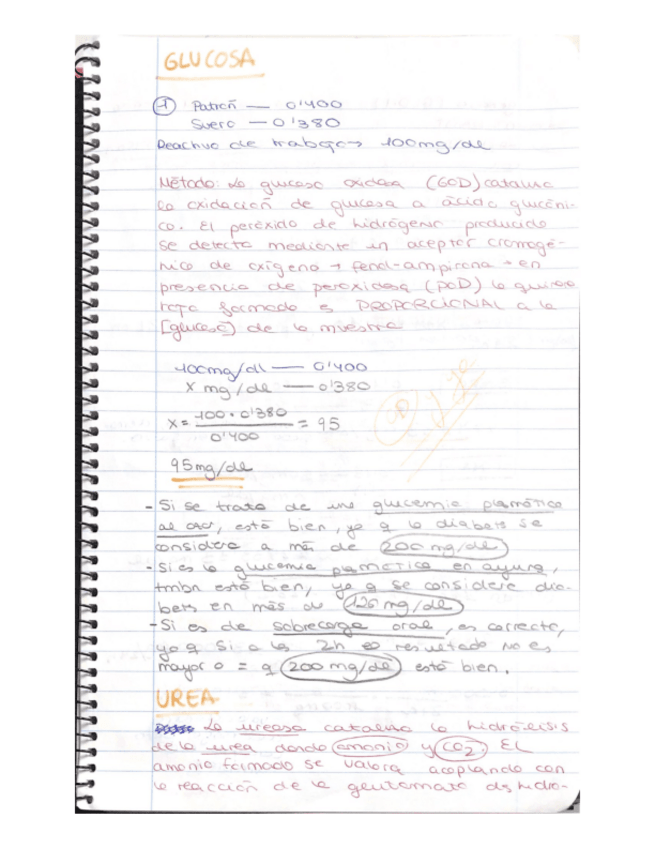 GLUCOSA
1 Patrón — 0'400
Suero — 0'380
Reactivo de trabajo → 100mg/dl
Método: La glucosa oxidasa (GOD) cataliza
la oxidación de glucosa a ácido glucóni-
co. El peróxido de hidrógeno producido
se detecta mediante un aceptor cromogé-
nico de oxígeno → fenol-ampirona → en
presencia de peroxidasa (POD) la quinona
roja formada es PROPORCIONAL a la
[glucosa] de la muestra
100mg/dl — 0'400
x mg/dl — 0'380
x = 100 · 0'380 / 0'400 = 95
95mg/dl
- Si se trata de una glucemia plasmática
al azar, está bien, ya q la diabetes se
considera a más de 200 mg/dl
- Si es la glucemia plasmática en ayuna,
tmbn está bien, ya q se considera dia-
betes en más de 126 mg/dl
- Si es de sobrecarga oral, es correcta,
ya q si a las 2h el resultado no es
mayor o = q 200 mg/dl está bien.
UREA
La ureasa cataliza la hidrólisis
de la urea dando amonio y CO2. El
amonio formado se valora acoplando con
la reacción de la glutamato dshidro-